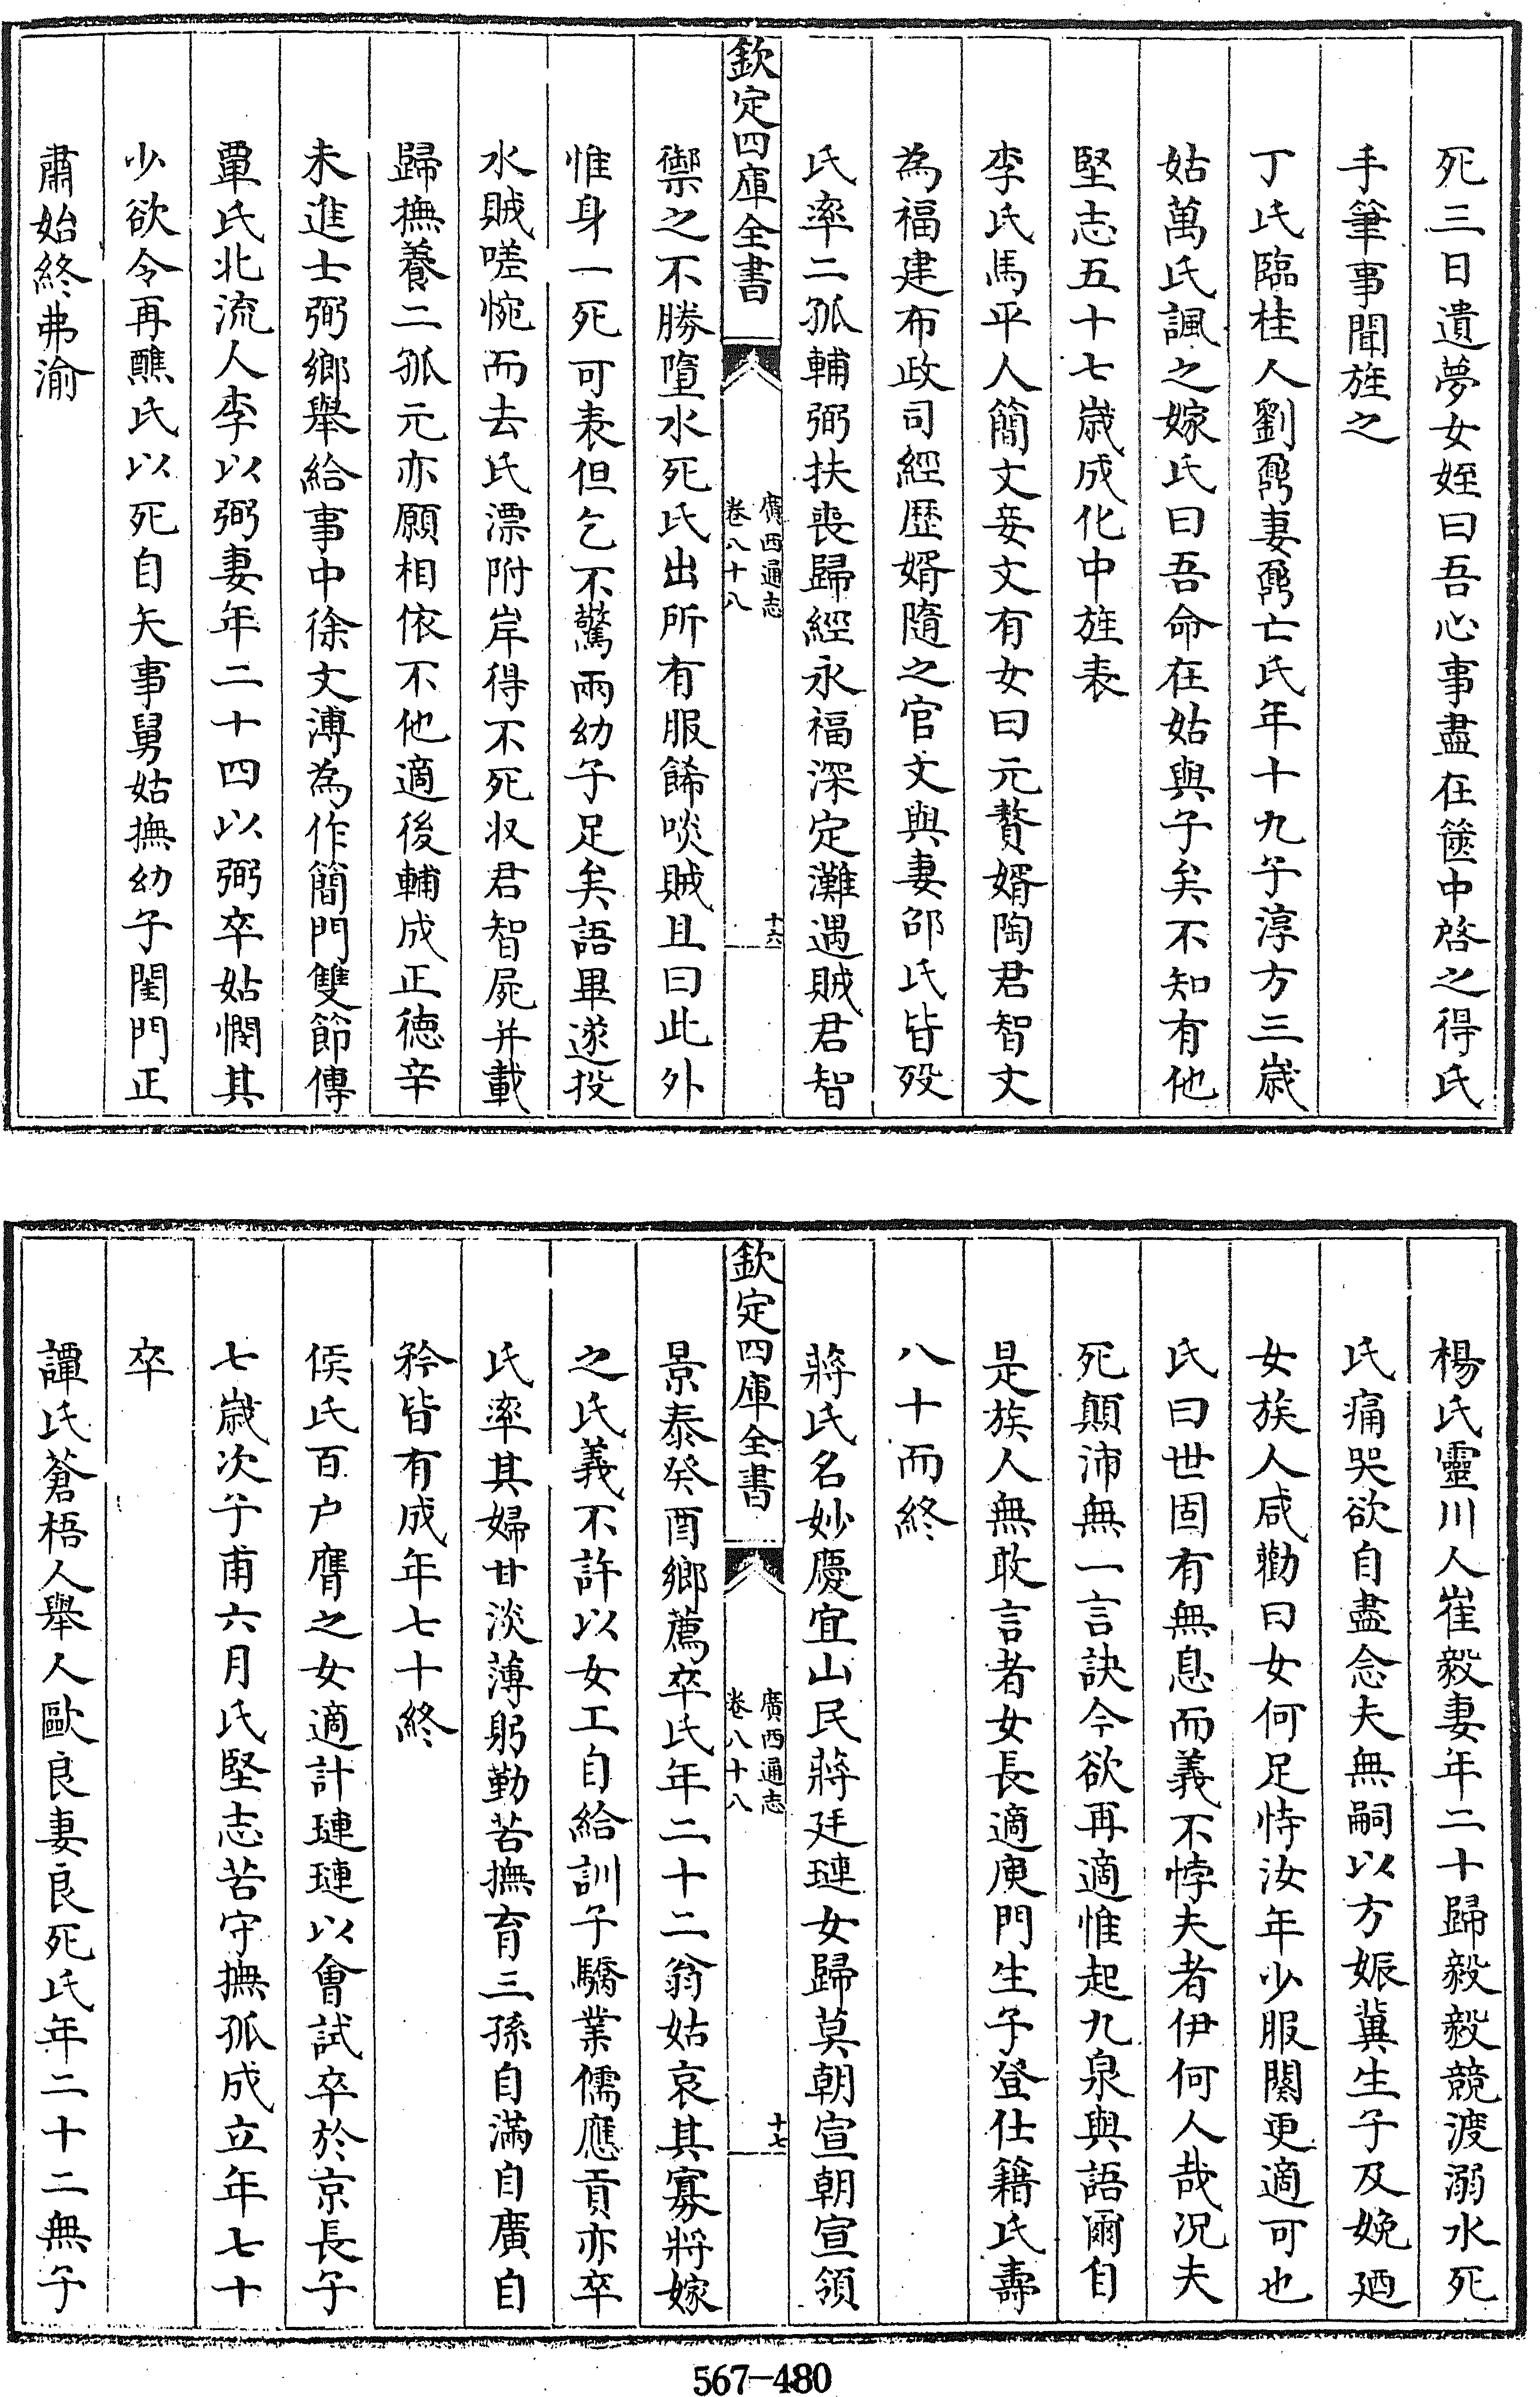 死三日遺夢女姪曰吾心事盡在篋中啓之得氏
手筆事聞旌之
丁氏臨桂人劉鄹妻鄹亡氏年十九子淳方三歲
姑萬氏諷之嫁氏曰吾命在姑與子矣不知有他
堅志五十七歲成化中旌表
李氏馬平人簡文妾文有女曰元贅婿陶君智文
為福建布政司經歴婿隨之官文與妻邵氏皆殁
氏率二孤輔弼扶喪歸經永福深定灘遇賊君智
欽定四庫全書
廣西通志
卷八十八
十六
禦之不勝墮水死氏出所有服餙啖賊且曰此外
惟身一死可表但乞不驚兩幼子足矣語畢遂投
水賊嗟惋而去氏漂附岸得不死収君智屍并載
歸撫養二孤元亦願相依不他適後輔成正徳辛
未進士弼鄉舉給事中徐文溥為作簡門雙節傳
覃氏北流人李以弼妻年二十四以弼卒姑憫其
少欲令再醮氏以死自矢事舅姑撫幼子閨門正
肅始終弗渝
楊氏靈川人崔毅妻年二十歸毅毅競渡溺水死
氏痛哭欲自盡念夫無嗣以方娠冀生子及娩廼
女族人咸勸曰女何足恃汝年少服闋更適可也
氏曰世固有無息而義不悖夫者伊何人哉况夫
死顛沛無一言訣今欲再適惟起九泉與語爾自
是族人無敢言者女長適庾門生子登仕籍氏壽
八十而終
蔣氏名妙慶宜山民蔣廷璉女歸莫朝宣朝宣領
欽定四庫全書
廣西通志
卷八十八
十七
景泰癸酉鄉薦卒氏年二十二翁姑哀其寡將嫁
之氏義不許以女工自給訓子驕業儒應貢亦卒
氏率其婦甘淡薄躬勤苦撫育三孫自滿自廣自
矜皆有成年七十終
侯氏百户膺之女適計璉璉以會試卒於京長子
七歲次子甫六月氏堅志苦守撫孤成立年七十
卒
譚氏蒼梧人舉人歐良妻良死氏年二十二無子
567-480